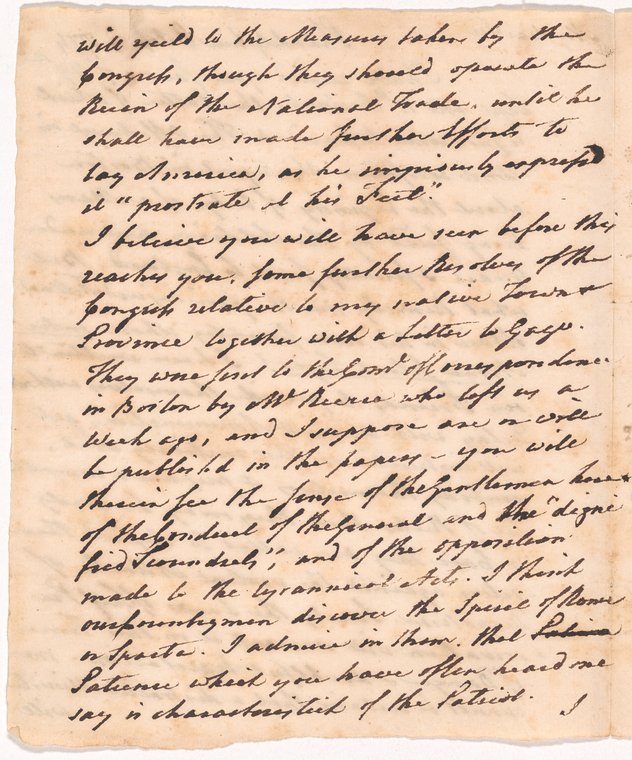 will yield to the Measures taken by the
Congress, though they should operate the
Ruin of the National Trade, until he
shall have made further Efforts to
lay America, as he impiously expressd
it "prostrate at his Feet."
I believe you will have seen before this
reaches you, some further Resolves of the
Congress relative to my native Town &
Province together with a Letter to Gage.
They were sent to the Come of Correspondence
in Boston by Mr Revere who left us a
Week ago, and I suppose are or will
be publishd in the papers - you will
therein see the sense of the Gentlemen here
of the Conduct of the General and the "digni
fied Scoundrels", and of the opposition
made to the tyrannical Acts. I think
our Countrymen discover the Spirit of Rome
or Sparta. I admire in them that
Patience which you have often heard me
say is characteristick of the Patriot.
I